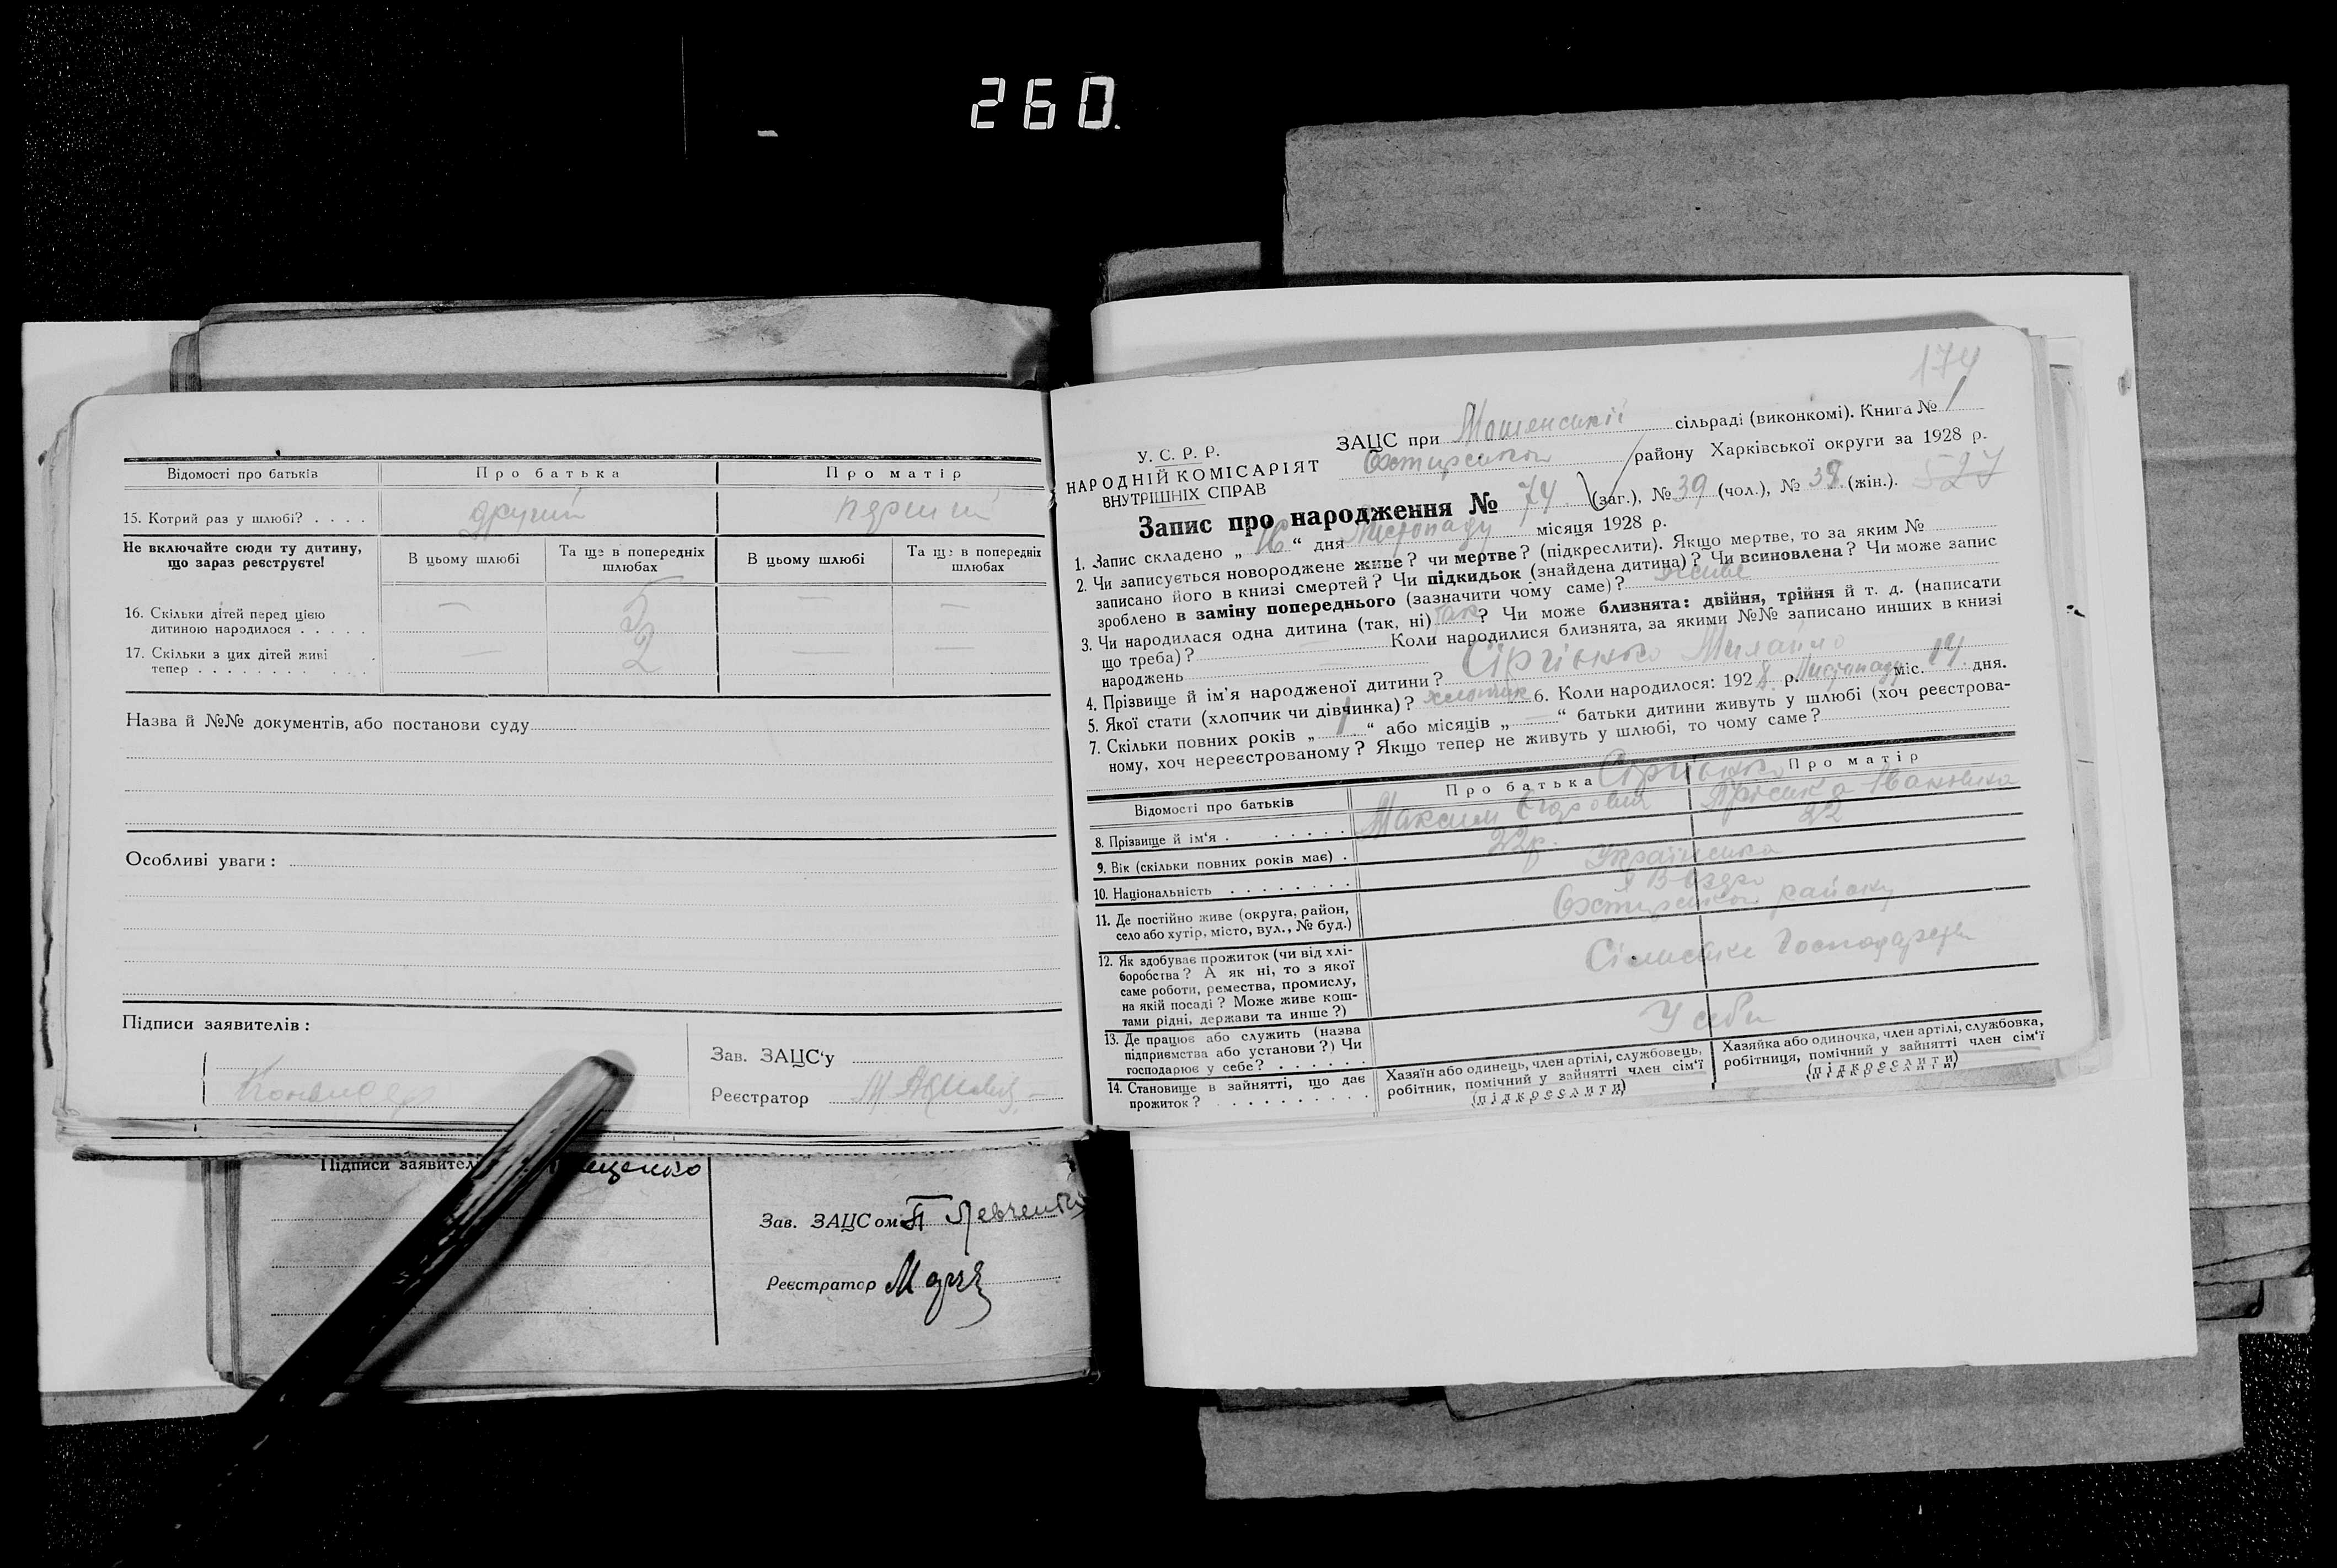 260.
Відомості про батьків Про батька Про матір
15. Котрий раз у шлюбі? . . . . другий перший
Не включайте сюди ту дитину, що зараз реєструєте!
В цьому шлюбі Та ще в попередніх шлюбах В цьому шлюбі Та ще в попередніх шлюбах
16. Скільки дітей перед цією
дитиною народилося . . . . . — 5 — —
17. Скільки з цих дітей живі
тепер . . . . . . . . . . . — 2 — —
Назва й №№ документів, або постанови суду
Особливі уваги:
Підписи заявителів:
Зав. ЗАЦС'у
Реєстратор
Підписи заявител
щенко
Зав. ЗАЦСом
Реєстратор
174
У. С. Р. Р.
НАРОДНІЙ КОМІСАРІЯТ
ВНУТРІШНІХ СПРАВ
ЗАЦС при сільраді (виконкомі). Книга № 1
Охтирської району Харківської округи за 1928 р.
Запис про народження № 74 (заг.), № 39 (чол.), № (жін.). 527
1. Запис складено „16“ дня Листопаду місяця 1928 р.
2. Чи записується новороджене живе? чи мертве? (підкреслити). Якщо мертве, то за яким №
записано його в книзі смертей? Чи підкидьок (знайдена дитина)? Чи всиновлена? Чи може запис
зроблено в заміну попереднього (зазначити чому саме)? живе
3. Чи народилася одна дитина (так, ні) так? Чи може близнята: двійня, трійня й т. д. (написати
що треба)? — Коли народилися близнята, за якими №№ записано инших в книзі
народжень —
4. Прізвище й ім'я народженої дитини? Сергієнко Михайло
5. Якої стати (хлопчик чи дівчинка)? хлопчик 6. Коли народилося: 1928 р. Листопаду міс. 14 дня.
7. Скільки повних років „1“ або місяців „—“ батьки дитини живуть у шлюбі (хоч реєстрова-
ному, хоч нереєстрованому? Якщо тепер не живуть у шлюбі, то чому саме?
Відомості про батьків Про батька Про матір
8. Прізвище й ім'я . . . . . . . . . Максим Івановна
9. Вік (скільки повних років має) . 22р. 22
10. Національність . . . . . . . . Українська
11. Де постійно живе (округа, район,
село або хутір, місто, вул., № буд.)
Охтирської району
12. Як здобуває прожиток (чи від хлі-
боробства? А як ні, то з якої
саме роботи, ремества, промислу,
на якій посаді? Може живе кош-
тами рідні, держави та инше?)
13. Де працює або служить (назва
підприємства або установи?) Чи
господарює у себе? . . . . . У себе
14. Становище в зайнятті, що дає
прожиток? . . . . . . . . . .
Хазяїн або одинець, член артілі, службовець,
робітник, помічний у зайнятті член сім'ї
(підкреслити)
Хазяйка або одиночка, член артілі, службовка,
робітниця, помічний у зайнятті член сім'ї
(підкреслити)